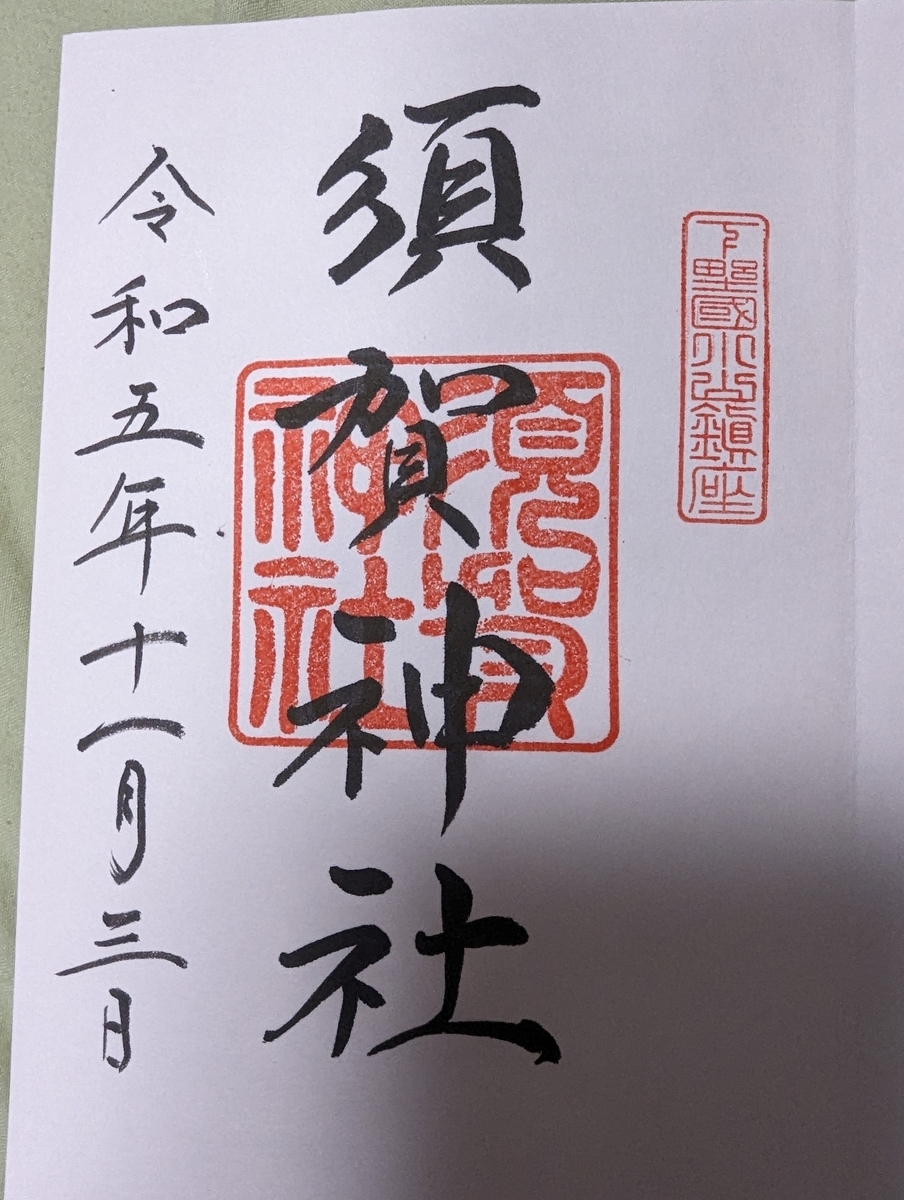 下野國小山鎮座
須賀神社
須賀神社
令和五年十一月三日